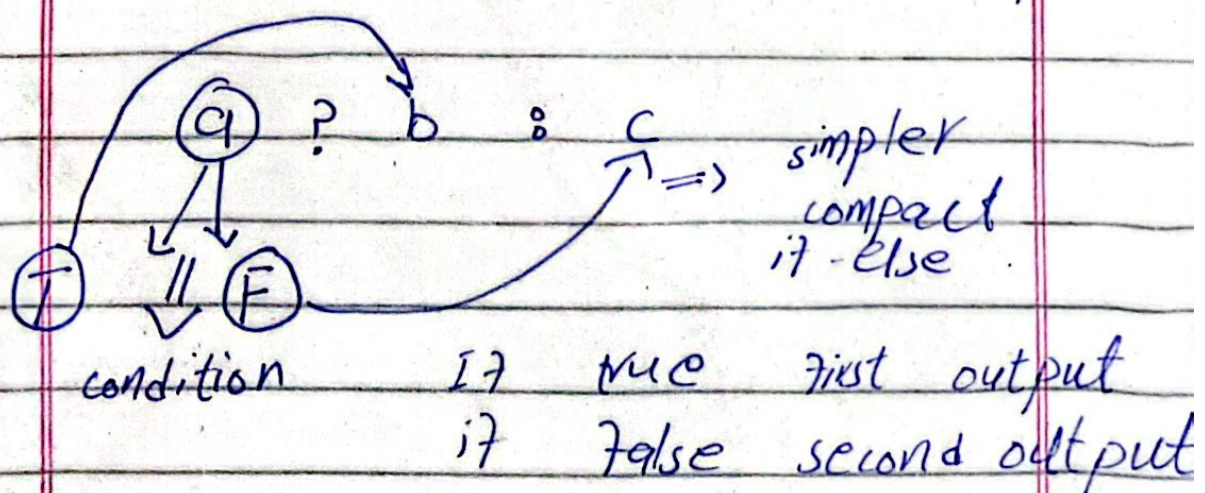 a ? b : c
=> simpler
compact
if - else
T F
condition If true first output
if false second output